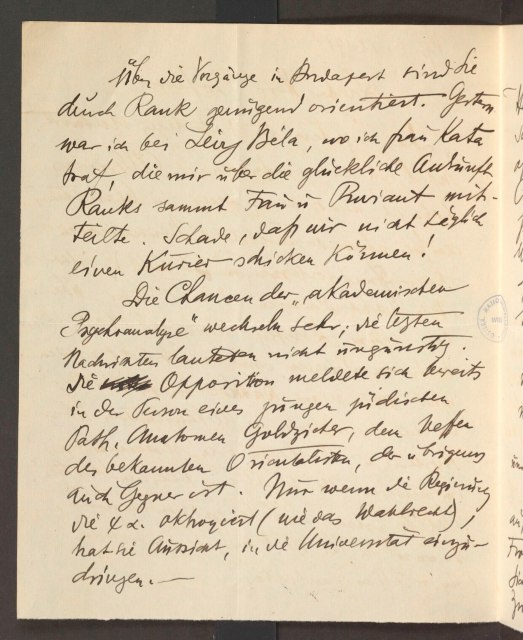 Über die Vorgänge in Budapest sind Sie
durch Rank genügend orientiert. Gestern
war ich bei Lévy Béla, wo ich frau Kata
traf, die mir über die glückliche Ankunft
Ranks sammt Frau u Proviant mit-
teilte. Schade, daß wir nicht täglich
einen Kurier schicken können!
Die Chancen der „akademischen
Psychoanalyse" wechseln sehr; die letzten
Nachrichten lauteten nicht ungünstig.
Die Opposition meldete sich bereits
in der Person eines jungen jüdischen
Path. Anatomen Goldzieher, dem Neffen
des bekannten Orientalisten, der übrigens
auch Gegner ist. Nur wenn die Regierung
die ψα. oktroyiert (wie das Wahlrecht),
hat sie Aussicht, in die Universität einzu-
dringen. —